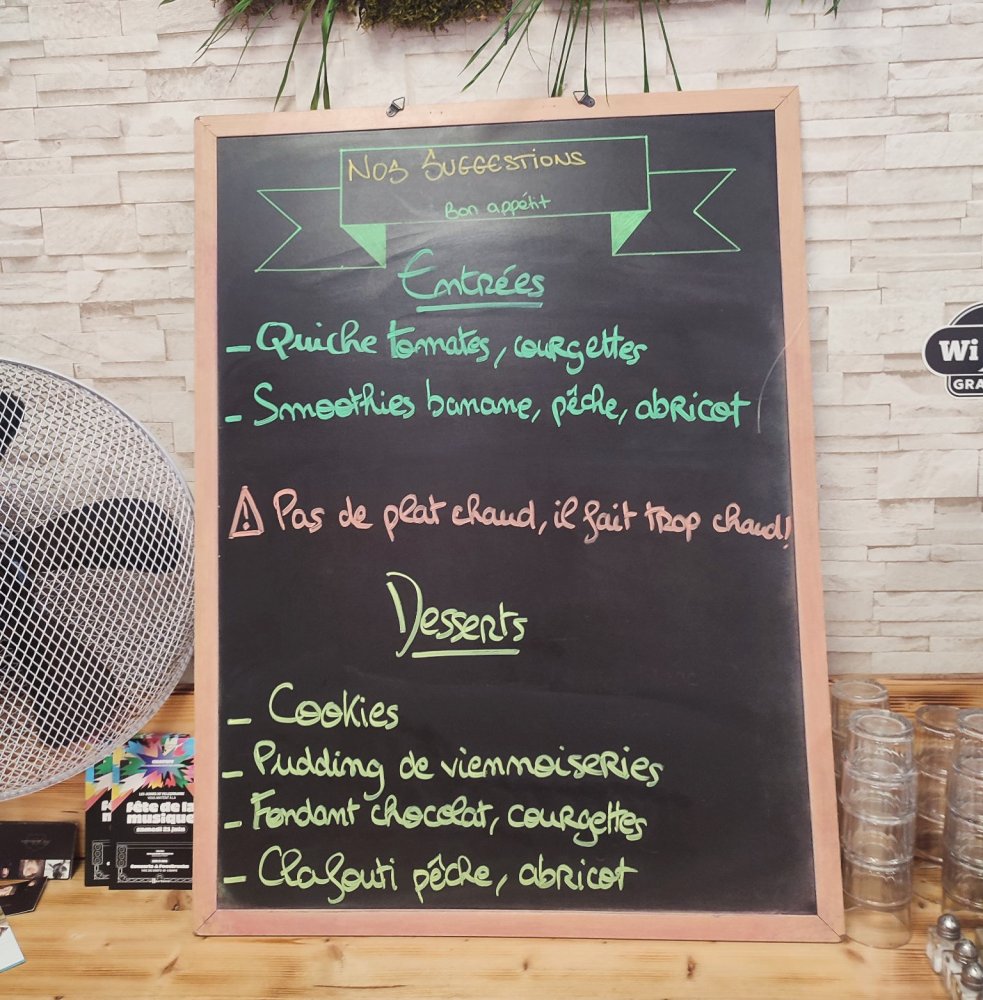 Nos Suggestions
Bon appétit
Entrées
- Quiche tomates, courgettes
- Smoothies banane, pêche, abricot
⚠ Pas de plat chaud, il fait trop chaud!
Desserts
- Cookies
- Pudding de viennoiseries
- Fondant chocolat, courgettes
- Clafouti pêche, abricot
Wi
GRA
Fête de la
musique
samedi 21 juin